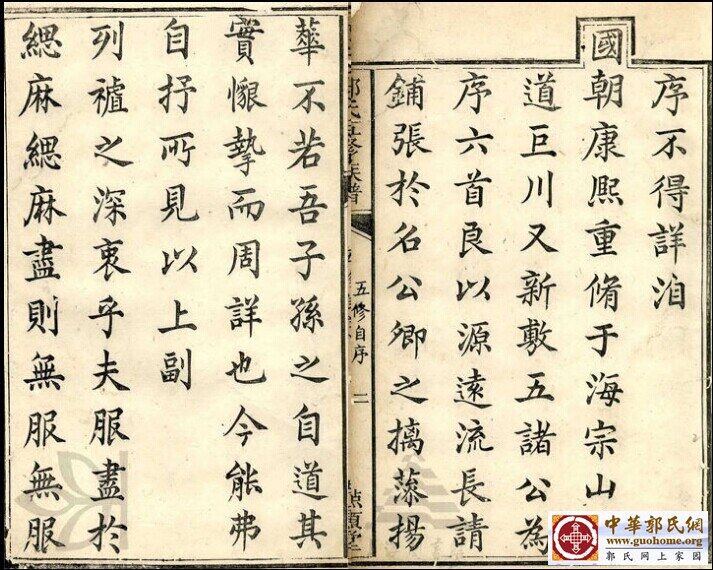 序不得詳洎
國朝康熙重脩于海宗山
道巨川又新敷五諸公為
序六首良以源遠流長請
鋪張於名公卿之摛藻揚
郭氏五修族譜
五修自序
二
華不若吾子孫之自道其
實懇摯而周詳也今能弗
自抒所見以上副
列禰之深衷乎夫服盡於
緦麻緦麻盡則無服無服
中華郭氏網
www.guohome.org
郭氏网上家园